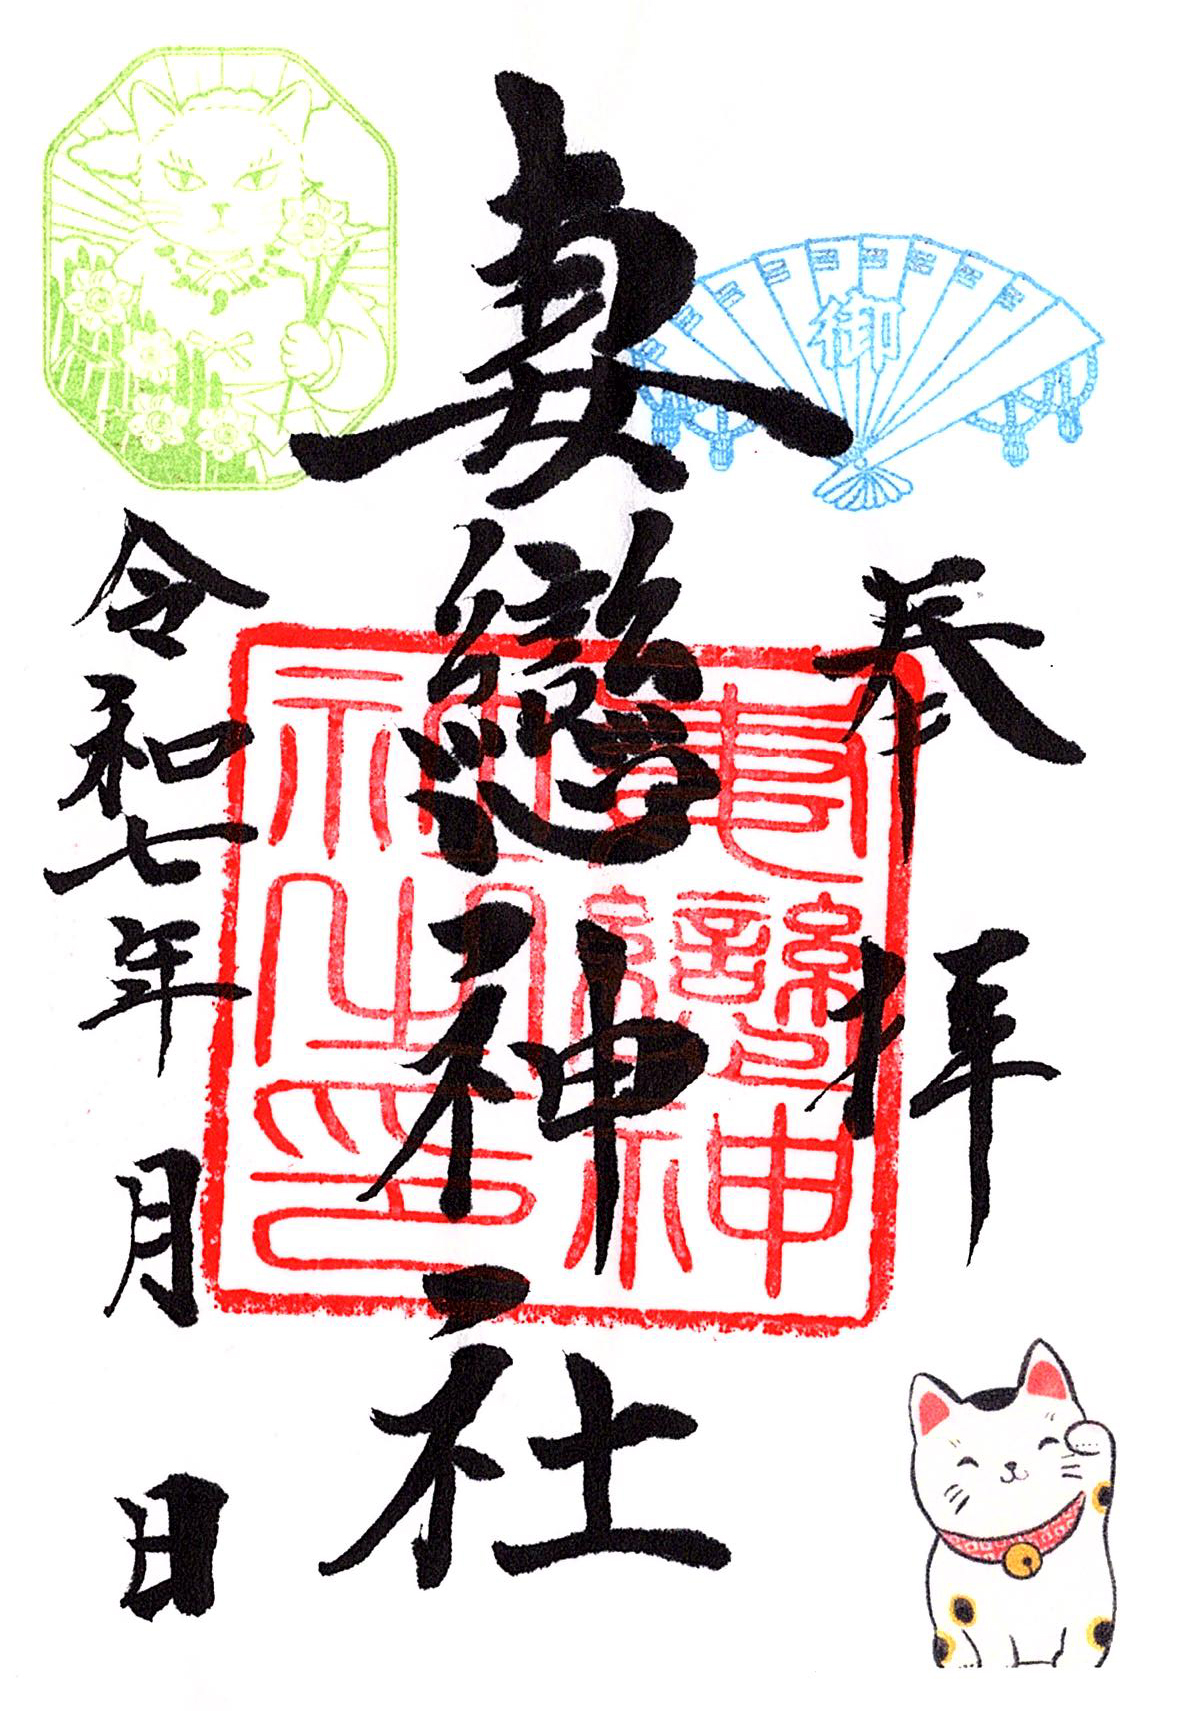 奉拝
御
妻戀神社
妻戀神
社之印
令和七年月日